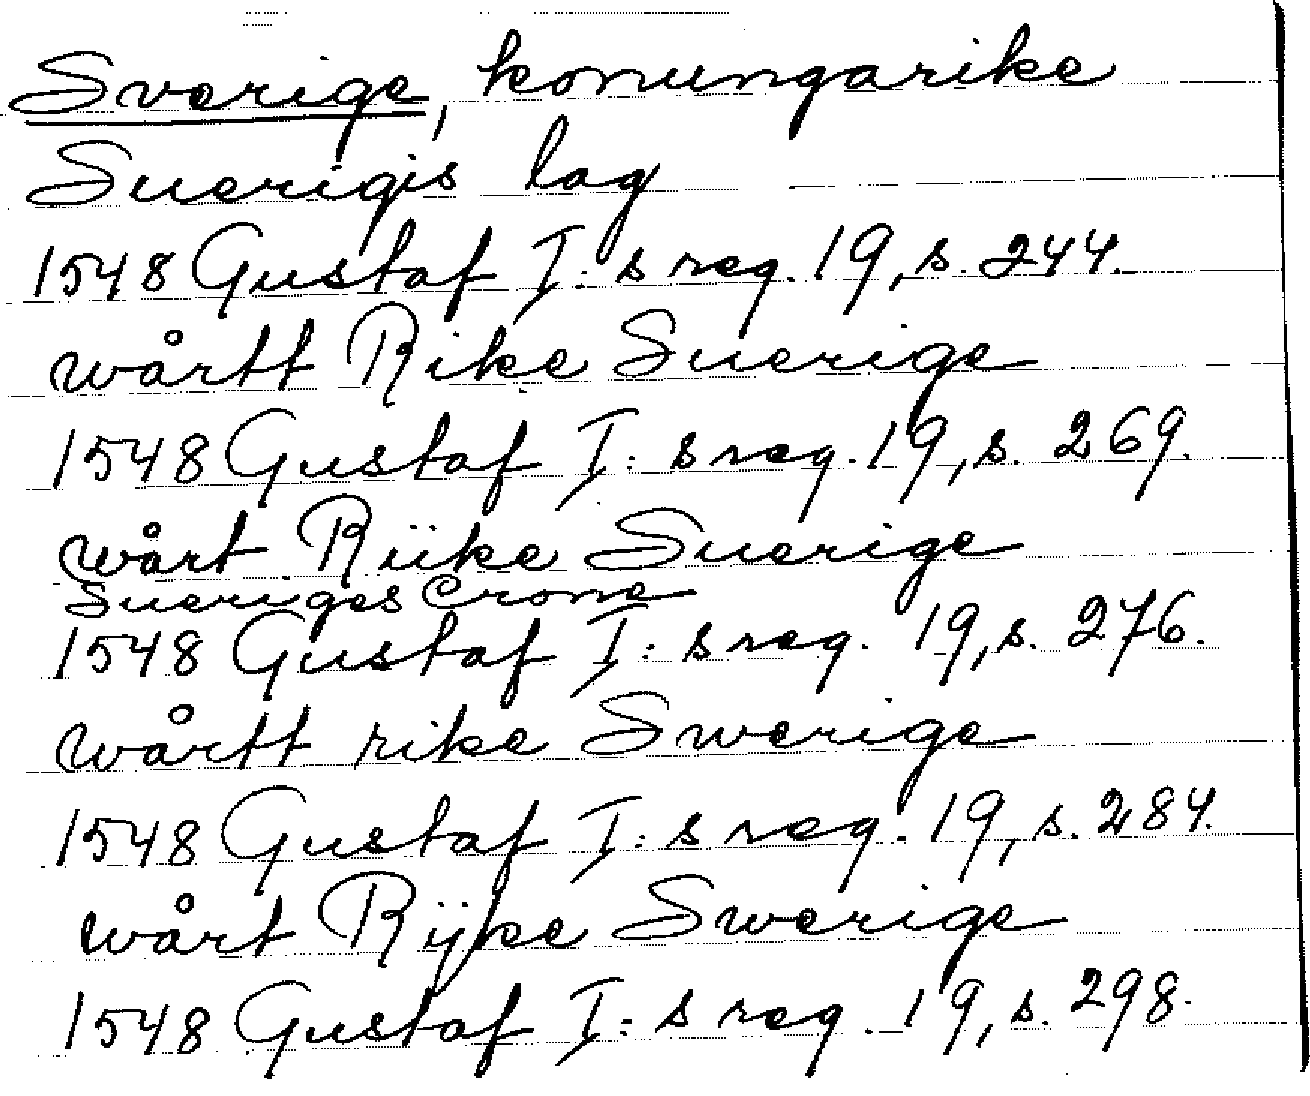 Sverige, konungarike
Suerigis lag
1548 Gustaf I: s reg. 19, s. 244.
wårtt Rike Suerige
1548 Gustaf I: s reg. 19, s. 269.
wårt Riike Suerige
Sueriges Crone
1548 Gustaf I: s reg. 19, s. 276.
wårtt rike Swerige
1548 Gustaf I: s reg. 19, s. 284.
wårt Rijke Swerige
1548 Gustaf I: s reg. 19, s. 298.